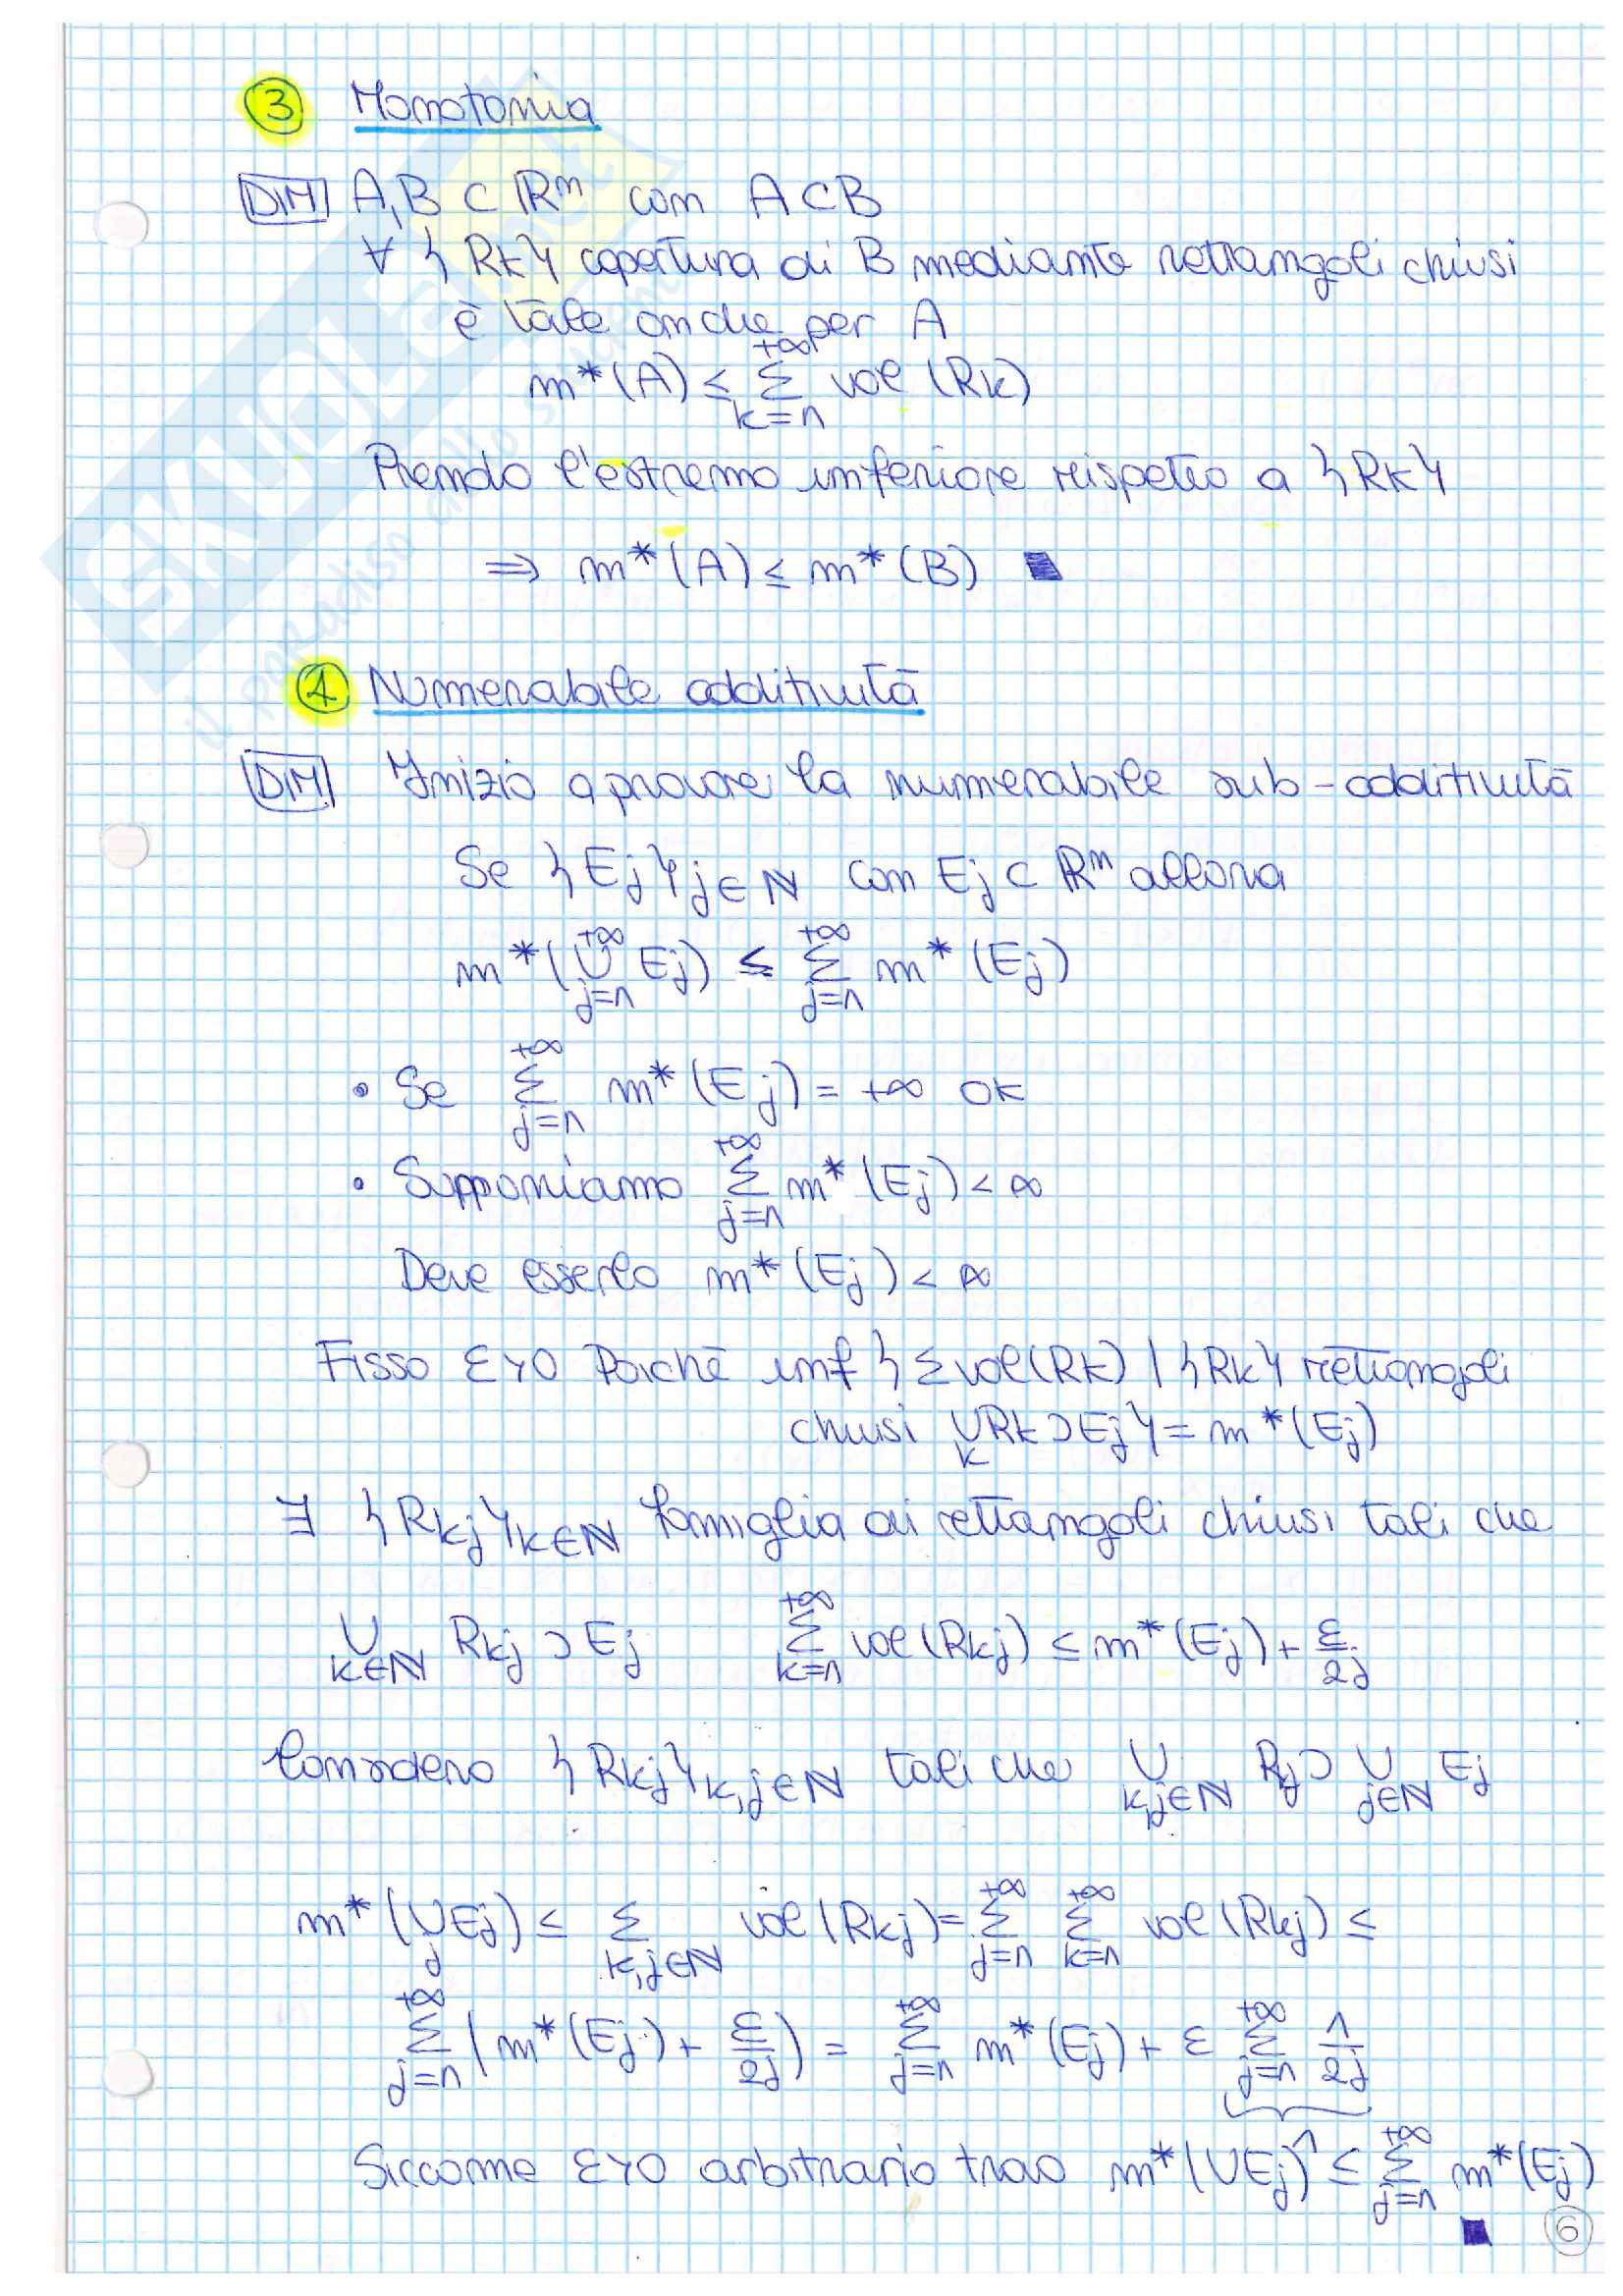 ③ Monotonia
DIM A, B ⊂ ℝⁿ con A ⊂ B
∀ {Rk} copertura di B mediante rettangoli chiusi
è tale anche per A
m*(A) ≤ Σ_{k=1}^{+∞} vol (Rk)
Prendo l'estremo inferiore rispetto a {Rk}
⇒ m*(A) ≤ m*(B) ■
① Numerabile additività
DIM Inizio a provare la numerabile sub-additività
Se {Ej}_{j∈ℕ} con Ej ⊂ ℝⁿ allora
m*(∪_{j=1}^{+∞} Ej) ≤ Σ_{j=1}^{+∞} m*(Ej)
• Se Σ_{j=1}^{+∞} m*(Ej) = +∞ OK
• Supponiamo Σ_{j=1}^{+∞} m*(Ej) < ∞
Deve esserlo m*(Ej) < ∞
Fisso ε>0 Poichè inf {Σ vol(Rk) | {Rk} rettangoli
chiusi ∪_k Rk ⊃ Ej} = m*(Ej)
∃ {Rkj}_{k∈ℕ} famiglia di rettangoli chiusi tali che
∪_{k∈ℕ} Rkj ⊃ Ej Σ_{k=1}^{+∞} vol(Rkj) ≤ m*(Ej) + ε/2j
Considero {Rkj}_{k,j∈ℕ} tali che ∪_{k,j∈ℕ} Rkj ⊃ ∪_{j∈ℕ} Ej
m*(∪_j Ej) ≤ Σ_{k,j∈ℕ} vol(Rkj) = Σ_{j=1}^{+∞} Σ_{k=1}^{+∞} vol(Rkj) ≤
Σ_{j=1}^{+∞} (m*(Ej) + ε/2j) = Σ_{j=1}^{+∞} m*(Ej) + ε Σ_{j=1}^{+∞} 1/2j
1
Siccome ε>0 arbitrario trovo m*(∪Ej) ≤ Σ_{j=1}^{+∞} m*(Ej)
■ ⑥
SKUOLA.net
il paradiso dello studente